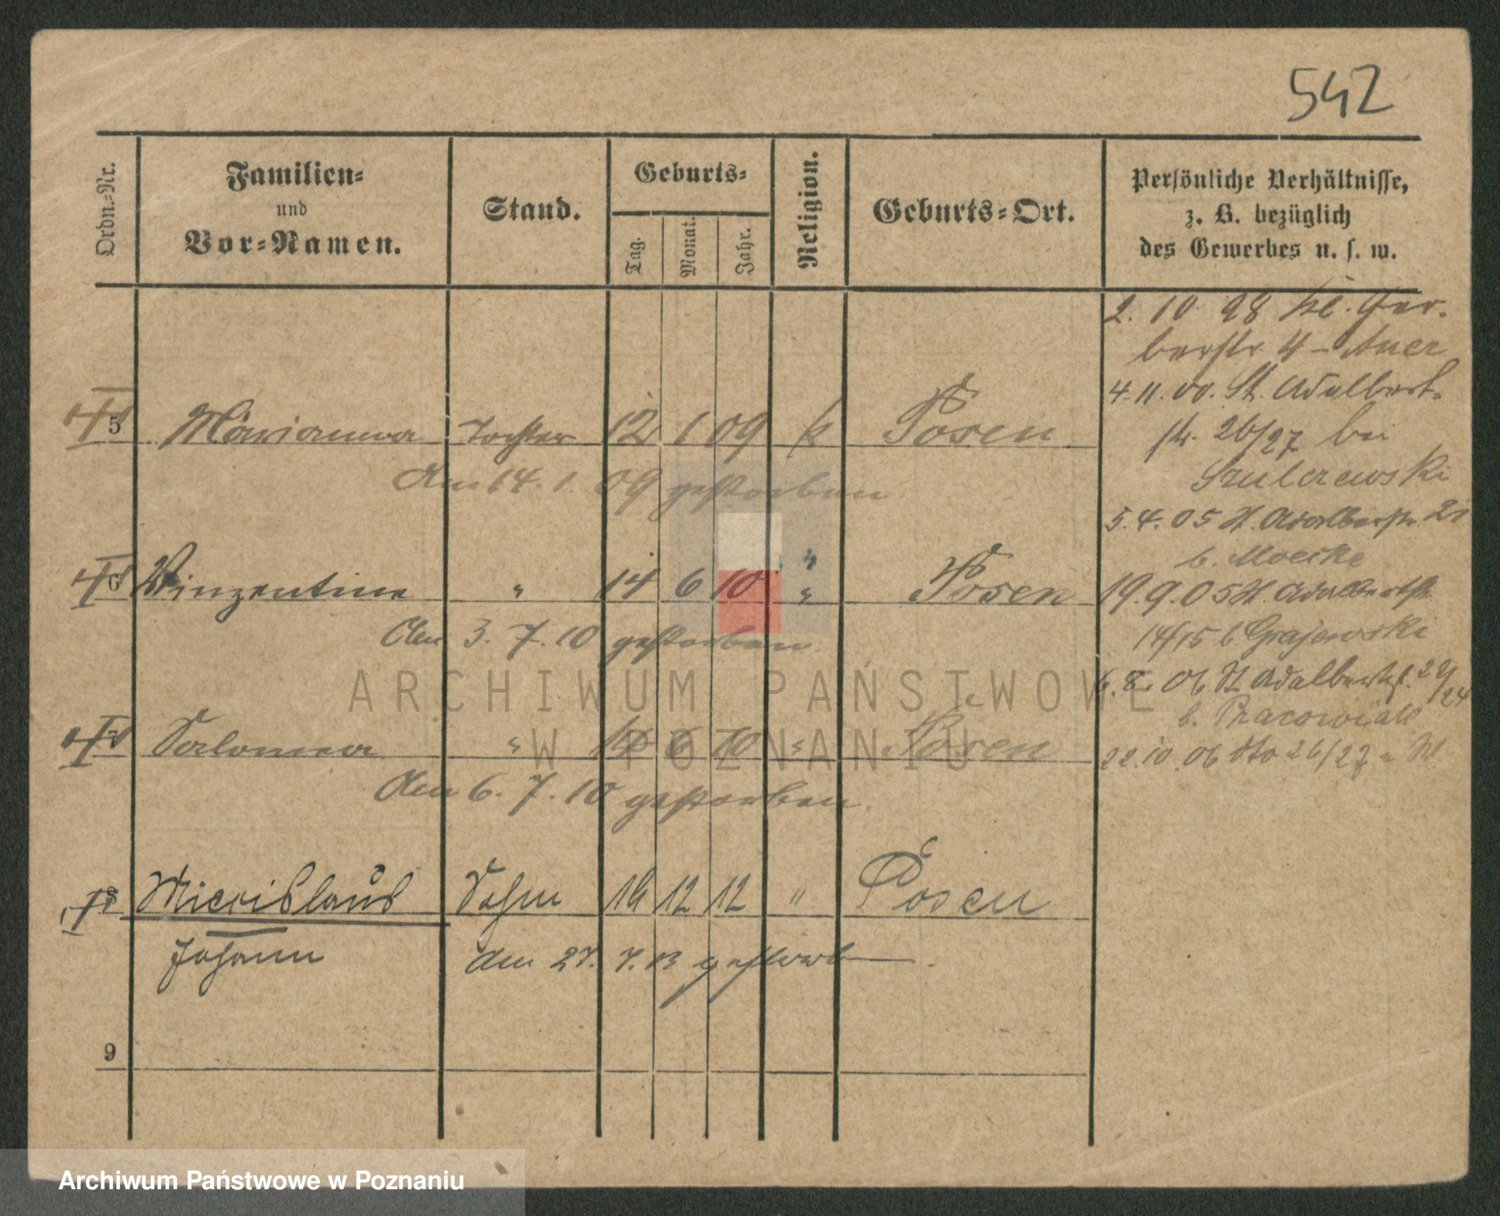 542
Ordn.-Nr.
Familien-
und
Vor-Namen.
Stand.
Geburts-
Tag.
Monat.
Jahr.
Religion.
Geburts-Ort.
Persönliche Verhältnisse,
z. B. bezüglich
des Gewerbes u. s. w.
2. 10. 98 Kl. Ger-
berstr 4 - Auer
4. 11. 00. St. Adalbert-
26/27 bei
Szulczewski
5 Marianna Tochter 12 1 09 k Posen
den 14. 1. 09 gestorben
5. 4. 05 St. Adalbertstr
b. Moeske
6 Winzentine " 14 6 10 " Posen
19. 9. 05 St. Adalbertstr
den 3. 7. 10 gestorben.
14/15 b Grajewski
6. 8. 06 St Adalbertstr. 23/24
b. Pracowiak
7 Salomea " 14 6 10 " Posen
22. 10. 06 dto 26/27
den 6. 7. 10 gestorben.
8 Miecislaus Sohn 16 12 12 " Posen
Johann den 27. 7. 13 gestorb.
9
ARCHIWUM PAŃSTWOWE
W POZNANIU
Archiwum Państwowe w Poznaniu